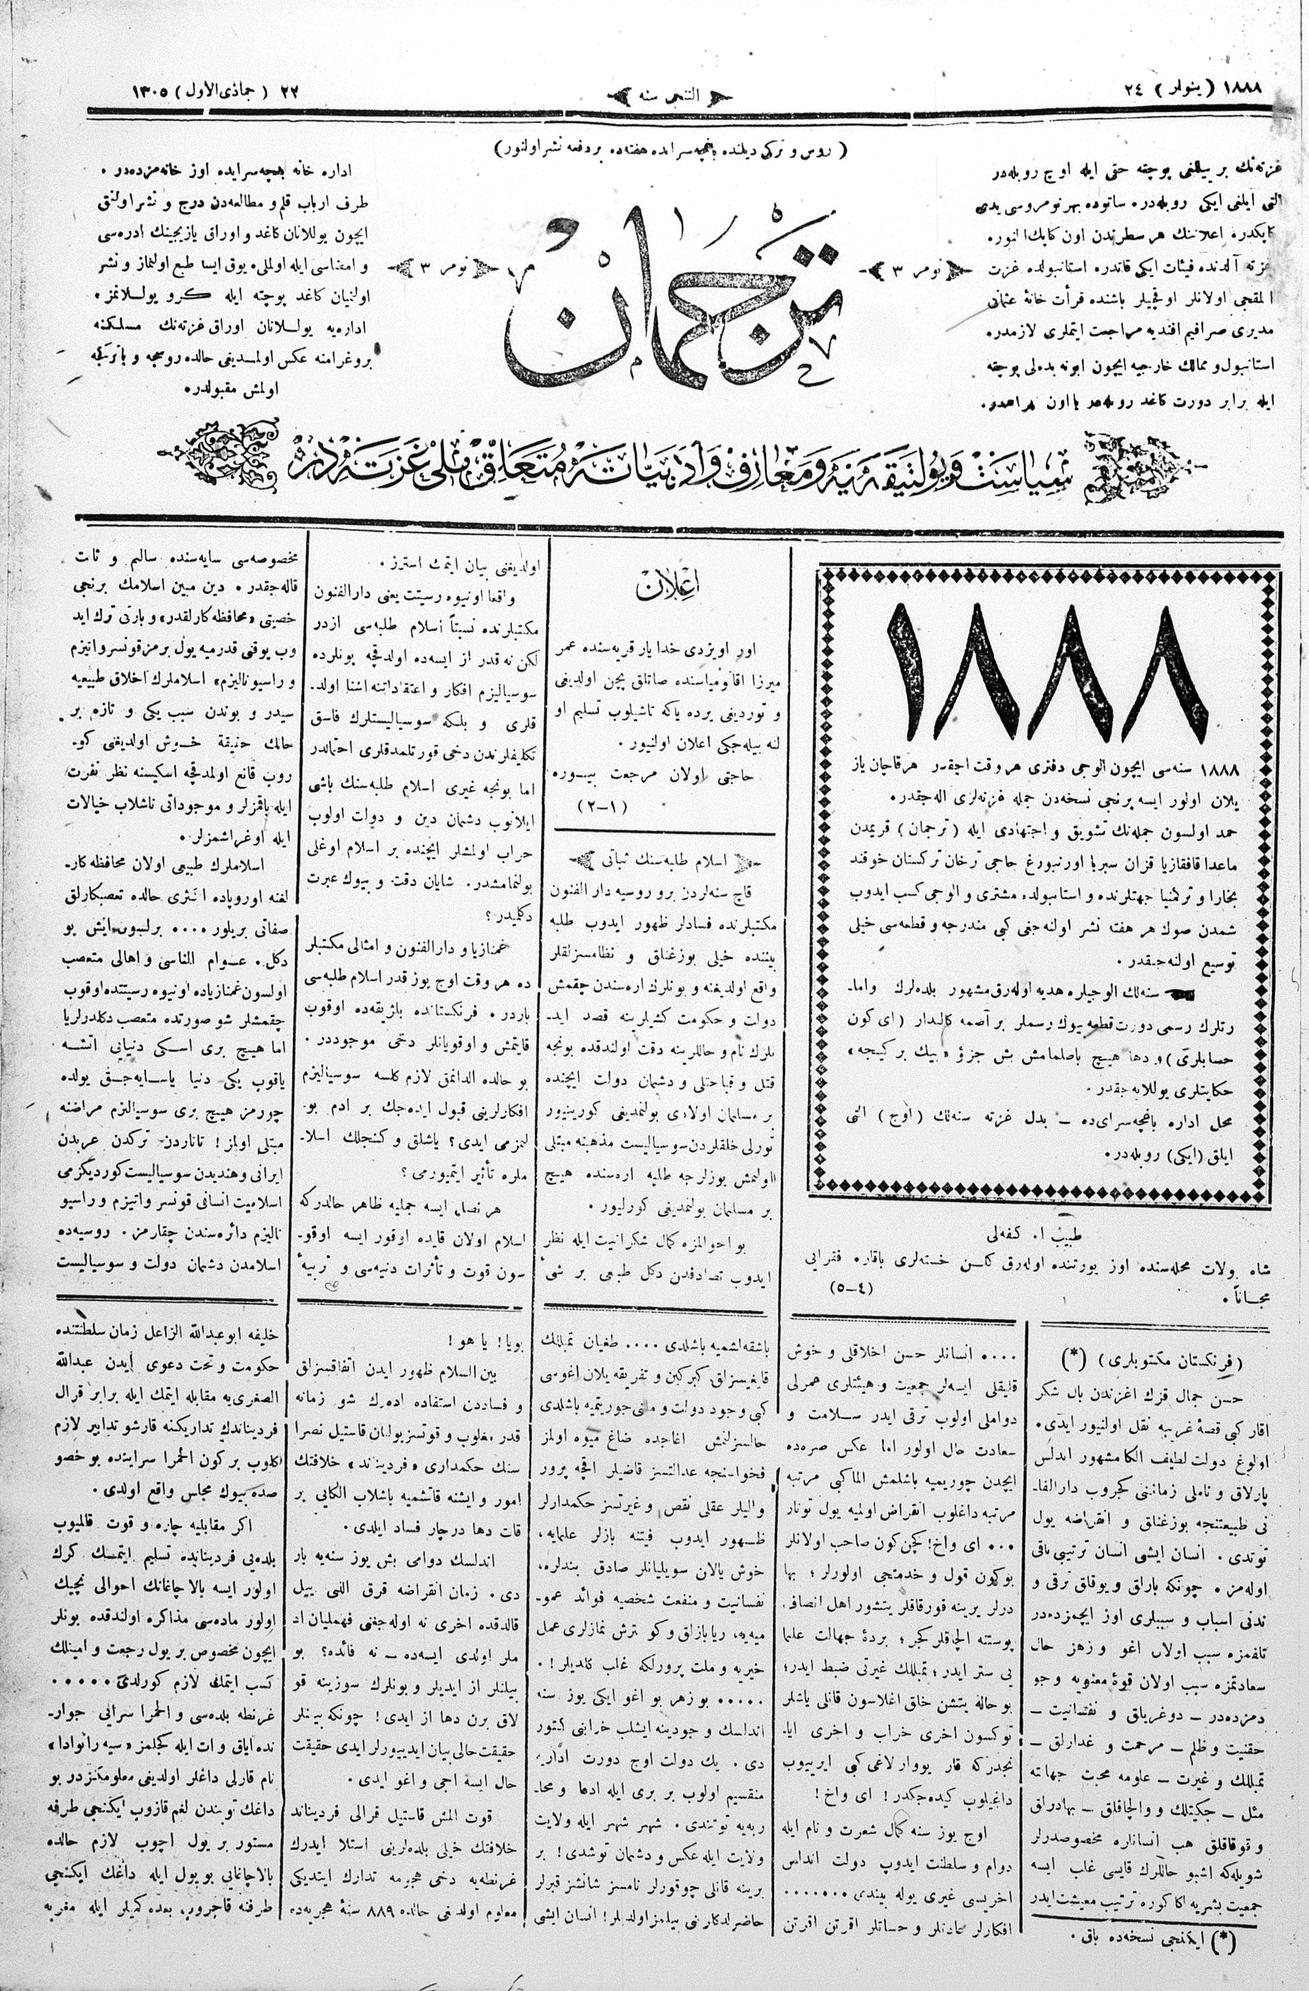 ١٨٨٨ ( ینولر ) ٢٤
التنجی سنه
٢٢ ( جماذی الاول ) ١٣٠٥
( روس و ترکی دیلنده باغچه سرایده هفته ده بر دفعه نشر اولنور )
غزته نك بر ییللغی پوچته حتی ایله اوچ روبله در
التی ایلغی ایکی روبله در. ساتوده بهر نومروسی یدی
کاپکدر. اعلاننك هر سطرندن اون کاپك النور.
استانبول و ممالك خارجیه ایچون ابونه بدلی پوچته
نومر ٣
ترجمان
نومر ٣
اداره خانه بغچه سرایده اوز خانه مزده در .
طرف ارباب قلم و مطالعه دن درج و نشر اولنق
ایچون یوللانان کاغد و اوراق یازیجینك ادره سی
و امضاسی ایله اولملی. یوق ایسا طبع اولنماز و نشر
اولنیان کاغد پوچته ایله کرو یوللانمز.
اداره یه یوللانان اوراق غزته نك مسلکنه
بروغرامنه عکس اولمدیغی حالده روسجه و یا ترکچه
اولمش مقبولدر.
سیاست و پولتیقه مدنیه و معارف و ادبیاته متعلق ملی غزته در
١٨٨٨
١٨٨٨ سنه سی ایچون الوجی دفتری هر وقت اچقدر هر قاچان یاز
یلان اولور ایسه برنجی نسخه دن جمله غزته لری اله جقدر.
حمد اولسون جمله نك تشویق و اجتهادی ایله (ترجمان) قریمدن
ماعدا قافقازیا قزان سبریا اورنبورغ حاجی ترخان ترکستان خوقند
بخارا و ترکمنیا جهتلرنده و استانبولده مشتری و الوجی کسب ایدوب
شمدن صوك هر هفته نشر اولنه جغی کبی مندرجه و قطعه سی خیلی
توسیع اولنه جقدر .
سنه لك الوجیلره هدیه اوله رق مشهور بلده لرك واما-
رتلرك رسمی دورت قطعه بیوك رسملر بر آصمه کالندار (ای کون
حسابلری) و دها هیچ باصلمامش بش جزؤ «بیك بر کیجه»
حکایتلری یوللانه جقدر .
محل اداره باغچه سرای ده — بدل غزته سنه لك (اوچ) التی
ایلق (ایکی) روبله در.
طبیب ا. کفه لی
شاه ولات محله سنده اوز یورتنده اوله رق کلن خسته لری باقار. فقرایی
مجاناً .
(٤-٥)
اعلان
اور اویزدی خدا یار قریه سنده عمر
میرزا اقانومیاسنده صاتلق پچن اولدیغی
و توردیغی یرده یا که تاشیلوب تسلیم او
لنه بیله جکی اعلان اولنیور .
حاجتی اولان مرجعت بیوره
(١-٢)
اسلام طلبه سنك ثباتی
قاچ سنه لردن برو روسیه دار الفنون
مکتبلرنده فسادلر ظهور ایدوب طلبه
بیننده خیلی بوزغنلق و نظامسزلقلر
واقع اولدیغنه و بونلرك اره سندن چقمش
دولت و حکومت کشیلرینه قصد اید-
نلرك نام و حاللرینه دقت اولندقده بونجه
قتل و قباحتلی و دشمان دولت ایچنده
بر مسلمان اولادی بولنمدیغی کورینیور
تورلی خلقلردن سوسیالیست مذهبنه مبتلی
اولنمش یوزلرجه طلبه اره سنده هیچ
بر مسلمان بولنمدیغی کورلیور .
بو احوالمزه کمال شکرانیت ایله نظر
ایدوب تصادفدن دکل طبعی بر شی
اولدیغنی بیان ایتمك استرز .
واقعا اونیوه رسیتت یعنی دار الفنون
مکتبلرنده نسبتاً اسلام طلبه سی ازدر
لکن نه قدر از ایسه ده اولدقچه بونلرده
سوسیالیزم افکار و اعتقاداتنه اشنا اولد.
قلری و بلکه سوسیالیستلرك فاسق
تکلیفلرندن دخی قورتلمدقلری احتمالدر
اما بونجه غیری اسلام طلبه سنك باشی
ایلانوب دشمان دین و دولت اولوب
خراب اولمشلر ایچنده بر اسلام اوغلی
بولنمامشدر. شایان دقت و بیوك عبرت
دکلیدر؟
غمنازیا و دار الفنون و امثالی مکتبلر
ده هر وقت اوچ یوز قدر اسلام طلبه سی
باردر. فرنکستانده بلژیقه ده اوقوب
قایتمش و اوقویانلر دخی موجوددر .
بو حالده الدانمق لازم کلسه سوسیالیزم
افکارلرینی قبول ایده جك بر ادم بو-
لنمزمی ایدی؟ یاشلق و کنجلك اسلا-
ملره تأثیر ایتمیورمی؟
هر نصل ایسه جمله یه ظاهر حالدرکه
اسلام اولان قایده اوقور ایسه اوقو-
سون قوت و تأثرات دنیه سی و تربیهٔ
مخصوصه سی سایه سنده سالم و ثات
قاله جقدر . دین مبین اسلامك برنجی
خصیتی «محافظه کارلقدر» و بارتی ترك اید
وب یوقنی قدرمیه یول برمز قونسرواتیزم
و راسیونالیزم» اسلاملرك اخلاق طبیعیه
سیدر و بوندن سبب یکی و تازه بر
حالك حقیقة خوش اولدیغی کو-
روب قانع اولمدقچه اسکیسنه نظر نفرت
ایله باقمزلر و موجوداتی تاشلاب خیالات
ایله اوغراشمزلر.
اسلاملرك طبیعی اولان محافظه کار-
لغنه اوروپاده اکثری حالده تعصبکارلق
صفاتی بریلور .... برلسون. ایش بو
دکل. عوام الناسی و اهالی متعصب
اولسون غمنازیاده اونیوه رسیتتده اوقوب
چقمشلر شو صورتده متعصب دکلدرلر یا
اما هیچ بری اسکی دنیایی اتشه
یاقوب یکی دنیا یاسایه جغز یولده
چورمز هیچ بری سوسیالیزم مراضنه
مبتلی اولمز! تاتاردن ترکدن عربدن
ایرانی و هندیدن سوسیالیست کوردیگزمی
اسلامیت انسانی قونسرواتیزم و راسیو
نالیزم دائره سندن چقارمز . روسیه ده
اسلامدن دشمان دولت و سوسیالیست
( فرنکستان مکتوبلری ) (*)
حسن جمال قزك اغزندن بال شکر
اقار کبی قصهٔ غریبه نقل اولنیور ایدی.
اولوغ دولت لطیف الکا مشهور اندلس
پارلاق و ناملی زماننی کچروب دار الفا-
نی طبیعتنجه بوزغنلق و انقراضه یول
توتدی. انسان ایشی انسان ترتیبی باقی
اوله مز . چونکه باراق و یوقاق ترقی و
تدنی اسباب و سببلری اوز ایچمزده در
تلفمزه سبب اولان اغو و زهر حال
سعادتمزه سبب اولان قوهٔ معنویه وجو
دمزده در — دوغریلق و نفسانیت —
حقنیت و ظلم — مرحمت و غدارلق —
تمبللك و غیرت — علومه محبت جهاته
مثل — جکیتلك و الچاقلق — بهادرلق
و قوقاقلق هب انسانلره مخصوصدرلر
شویله که اشبو حاللرك قایسی غلب ایسه
جمعیت بشریه اکا کوره ترتیب معیشت ایدر
(*) ایکنجی نسخه ده باق .
.... انسانلر حسن اخلاقلی و خوش
قلیقلی ایسه لر جمعیت و هیئتلری همرلی
دواملی اولوب ترقی ایدر سلامت و
سعادت حال اولور اما عکس صره ده
ایچدن چوریمیه باشلمش الما کبی مرتبه
مرتبه داغلوب انقراض اولمیه یول توتار
... ای واخ! کچن کون صاحب اولانلر
بوکون قول و خدمتجی اولورلر؛ بها
درلر یرینه قورقاقلر یتشور اهل انصاف.
پوستنه الچاقلر کچر؛ بردهٔ جهالت علما
یی ستر ایدر؛ تمبللك غیرتی ضبط ایدر؛
بو حاله یتشن خلق اغلاسون قانلی یاشلر
توکسون اخری خراب و اخری ایا-
نجدرکه قار یووارلاغی کبی ایرییوب
داغیلوب کیده جکدر! ای واخ!
اوچ یوز سنه کمال شهرت و نام ایله
دوام و سلطنت ایدوب دولت اندلس
اخریسی غیری یوله بیندی .......
افکارلر عادتلر و حساتلر اقرتن اقرتن
باشقه لشمیه باشلدی .... طغیان تمبللك
قایغیسزلق کبرکین و تفریقه یلان اغوسی
کبی وجود دولت و ملتی چوریتمیه باشلدی
حالسزلنمش اغاجده ضاغ میوه اولمز
فخوانجه عدالتسز قاضیلر اقچه پرور
والیلر عقلی نقص و غیرتسز حکمدارلر
ظهور ایدوب فیتنه بازلر علمایه.
خوش یالان سویلیانلر صادق بندلره.
نفسانیت و منفعت شخصیه فوائد عمو-
میه یه. ریابازلق و کوسترش نمازلری عمل
خیریه و ملت پرورلکه غلب کلدیلر!.
..... بو زهر بو اغو ایکی یوز سنه
اندلسك وجودینه ایشلب خرابنی کتور
دی. یك دولت اوچ دورت اداره
منقسیم اولوب بر بری ایله ادعا و محا-
ربه یه توتندی. شهر شهر ایله ولایت
ولایت ایله عکس و دشمان توشدی! بر
برینه قانلی چوقورلر نامسز شانسز قبرلر
حاضرلدکارنی بیلمز اولدیلر! انسان ایشی
بویا! یا هو!
بین السلام ظهور ایدن اتفاقسزلق
و فساددن استفاده اده رك شو زمانه
قدر مغلوب و قوتسز بولنان قاستیل نصرا
سنك حکمداری «فردیناند» خلافتك
امور و ایشنه قاتشمیه باشلاب الکایی بر
قات دها درچار فساد ایلدی.
اندلسك دوامی بش یوز سنه یه بار
دی. زمان انقراضه قرق اللی ییل
قالدقده اخری نه اوله جغنی فهملیان اد
ملر اولدی ایسه ده — نه فائده؟ بو
بیلنلر از ایدیلر و بونلرك سوزینه قو
لاق برن دها از ایدی! چونکه بیلنلر
حقیقت حالی بیان ایدییورلر ایدی حقیقت
حال ایسه اجی و اغو ایدی.
قوت المش قاستیل قرالی فردیناند
خلافتك خیلی بلده لرینی استلا ایدرك
غرنطه یه دخی هجرمه تدارك ایتدیکی
معلوم اولدقی حالده ٨٨٩ سنهٔ هجریه ده
خلیفه ابو عبدالله الزاعل زمان سلطنتنده
حکومت و تحت دعوی ایدن عبدالله
الصغری یه مقابله ایتمك ایله برابر قرال
فردیناندك تدارکینه قارشو تدابیر لازم
کلوب بر کون الحمرا سراینده بو خصو
صده بیوك مجلس واقع اولدی.
اکر مقابلیه چاره و قوت قالمیوب
بلده یی فردینانده تسلیم ایتمك کرك
اولور ایسه بالا چاغانك احوالی نیچیك
اولور ماده سی مذاکره اولندقده بونلر
ایچون مخصوص بر یول رجعت و امینلك
کسب ایتمك لازم کورلدی .....
غرنطه بلده سی و الحمرا سرایی جوار-
نده ایاق و ات ایله کچلمز «سیه رانوادا»
نام قارلی داغلر اولدیغی معلومکزدر بو
داغك توبندن لغم قازوب ایکنجی طرفه
مستور بر یول اچوب لازم حالده
بالاچاغانی بو یول ایله داغك ایکنجی
طرفنه قاچروب بعده کمیلر ایله مغربه